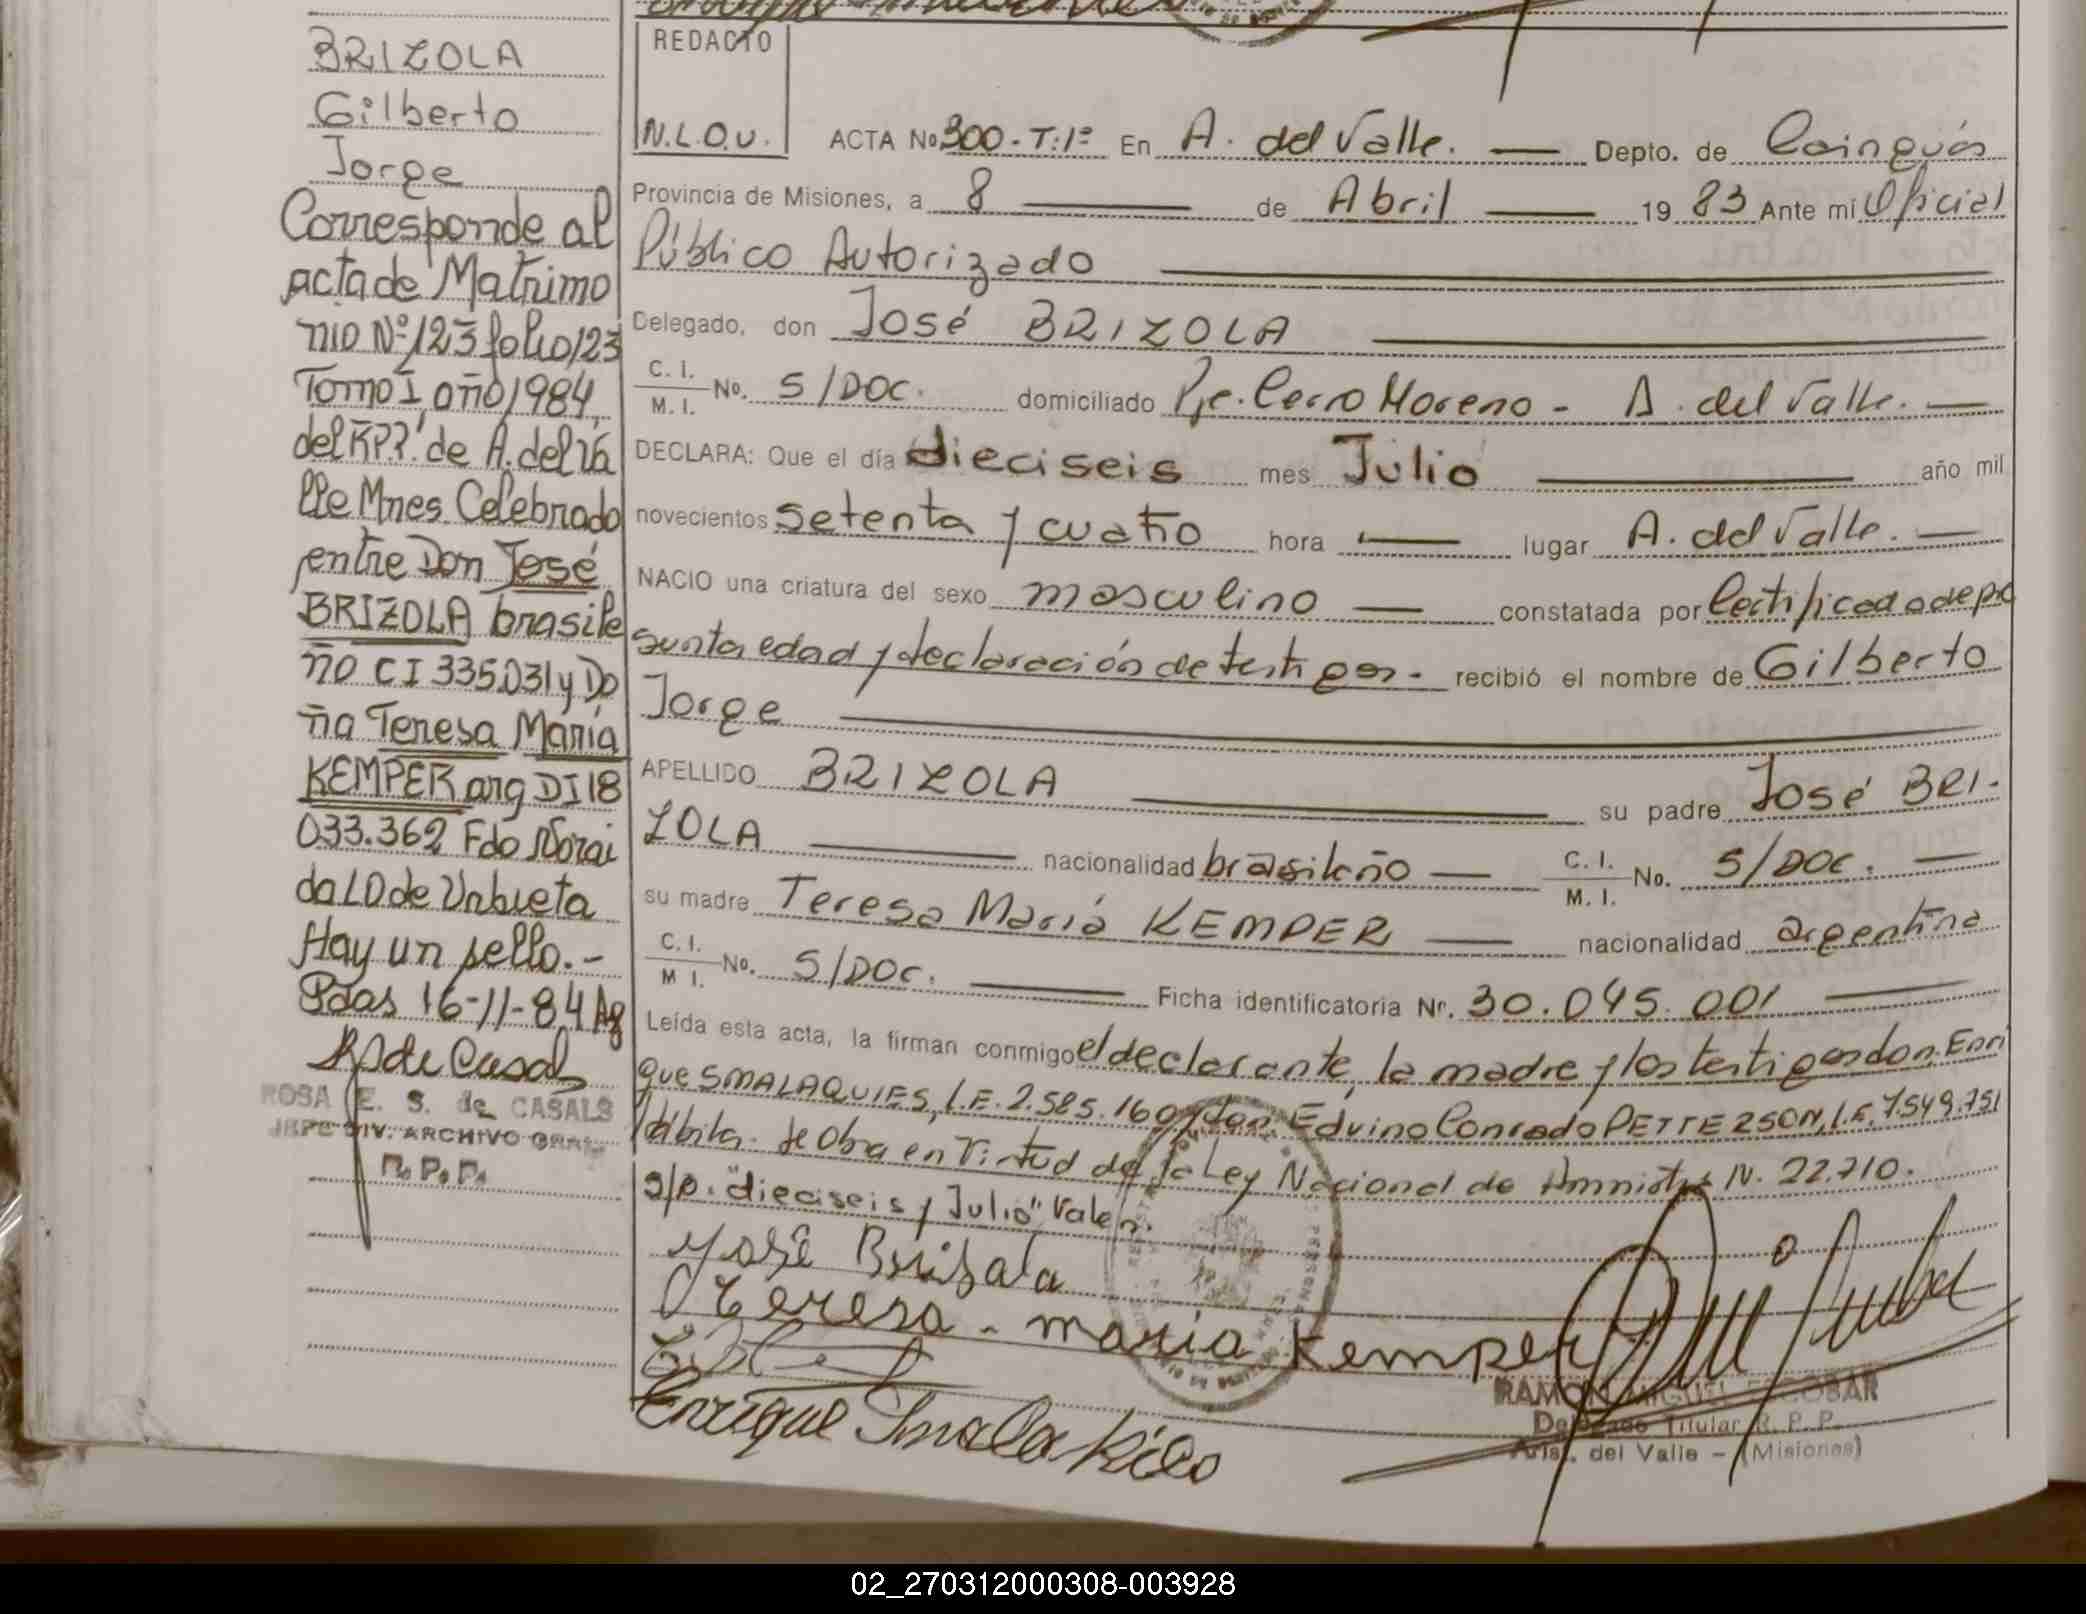 BRIZOLA
Gilberto
Jorge
Corresponde al
acta de Matrimo
nio Nº 123 folio 123
Tomo I año 1984
del R.P.P. de A. del Va
lle Mnes Celebrado
entre Don José
BRIZOLA brasile
ño CI 335.031 y Do
ña Teresa María
KEMPER arg DI 18
033.362 Fdo Norai
da LD de
Hay un sello.-
Pdas 16-11-84
ROSA E. S. de CASALS
JEFE DIV. ARCHIVO GRAL.
R. P. P.
REDACTO
N.L.O.U.
ACTA No 300 - T: 1º En A. del Valle. — Depto. de Cainguás
Provincia de Misiones, a 8 — de Abril — 19 83 Ante mí Oficial
Público Autorizado
Delegado, don José BRIZOLA
C. I. / M. I. No. S/DOC. domiciliado Pje. Cerro Moreno - A. del Valle. —
DECLARA: Que el día dieciseis mes Julio — año mil
novecientos setenta y cuatro hora — lugar A. del Valle. —
NACIO una criatura del sexo masculino — constatada por Certificado de pre
sunta edad y declaración de testigos. recibió el nombre de Gilberto
Jorge
APELLIDO BRIZOLA — su padre José BRI-
ZOLA — nacionalidad brasileño — C. I. / M. I. No. S/DOC. —
su madre Teresa María KEMPER — nacionalidad argentina
C. I. / M I. No. S/DOC. — Ficha identificatoria Nr. 30.045.001 —
Leída esta acta, la firman conmigo el declarante, la madre y los testigos don Enri
que SMALAQUIES, L.E. 2.585.160 y don Edvino Conrado PETTERSON, L.E. 7.549.751
de Obra en Virtud de la Ley Nacional de Amnistía N. 22.710.
s/p. "dieciseis y Julio" Valen.
José Brisala
Teresa - maria Kemper
Enrique
RAMON MIGUEL ESCOBAR
Delegado Titular R. P. P.
Arist. del Valle - (Misiones)
02_270312000308-003928